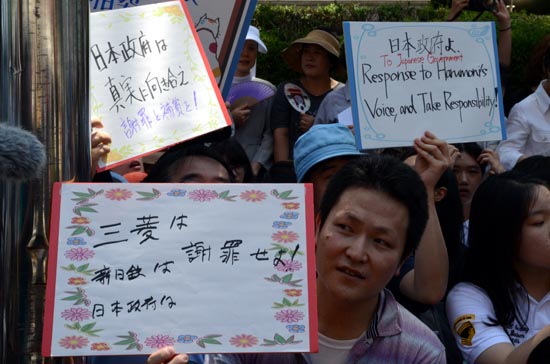 日本政府は
真実に向き合え
謝罪と補償を!
日本政府よ、
To Japanese Government
Response to Harumoni's
Voice, and Take Responsibility!
三菱は
新日鉄は 謝罪せよ!
日本政府は